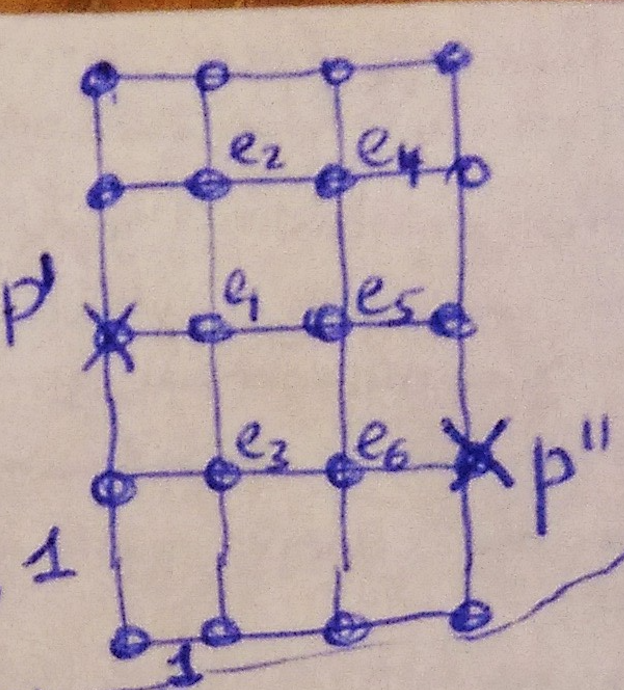 e₂ e₄
p' e₁ e₅
e₃ e₆ p''
1
1